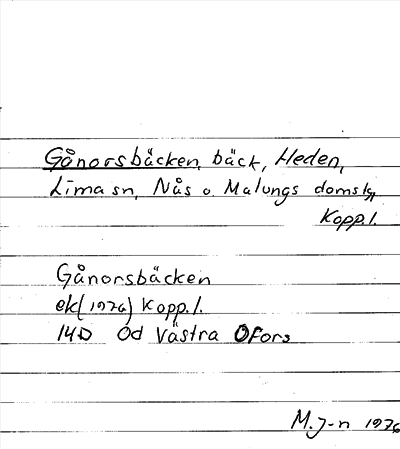 Gånorsbäcken, bäck, Heden,
Lima sn, Nås o. Malungs domsg,
Kopp.l.
Gånorsbäcken
ek (1976) Kopp.l.
14D Öd Västra Ofors
M.J-n 1976